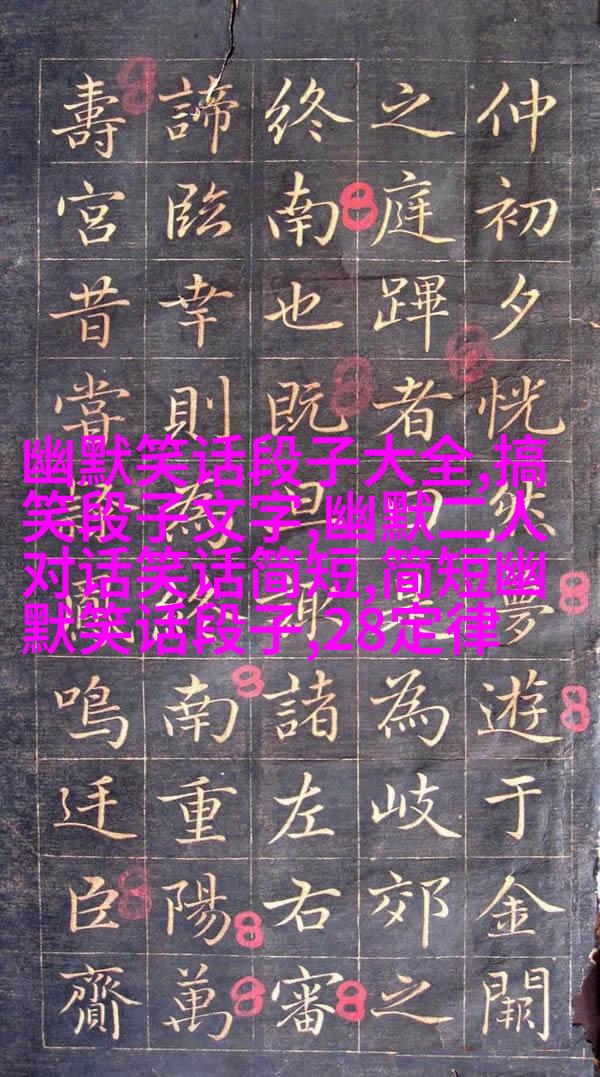 仲初夕恍然夢遊于金闕
之庭蹕者曰為岐郊之
終南也既旦諸左右審
諦臨幸則為南重陽萬
壽宮昔嘗鳴迋臣齎
幽默笑话段子大全,搞
笑段子文字,幽默二人
对话笑话简短,简短幽
默笑话段子,28定律